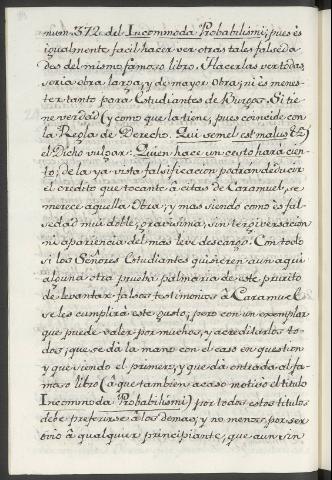 num. 372. del Incommoda Probabilismi; pues és
igualmente facil hacer ver otras tales falseda
des del mismo famoso libro. Hacerlas ver todas,
seria obra larga, y de mayor Obra; ni és menes-
ter tanto para Estudiantes de Burgos. Si tie-
ne verdad (y como que la tiene, pues coincide con
la Regla de Derecho. Qui semel est malus &c)
el Dicho vulgar: Quien hace un cesto hará cien-
to; de la ya vista falsificacion podrán deducir
el credito que tocante à citas de Caramuel, se
merece aquella Obra; y mas siendo como és fal-
sedad mui doble, gravisima, sin tergiversacion
ni apariencia del mas leve descargo. Con todo
si los Señores Estudiantes quisieren aun aqui
alguna otra prueba palmaria de este prurito
de levantar falsos testimonios à Caramuel,
se les cumplirá este gusto; pero con un exemplar
que puede valer por muchos, y acreditarlos to-
dos; que se dà la mano con el caso en question
y que siendo el primero, y que dà entrada al fa-
moso libro (à que tambien acaso motivó el titulo
Incommoda Probabilismi) por todos estos titulos
debe preferirse à los demas; y no menos por ser
obvio à qualquier principiante, que aun sin